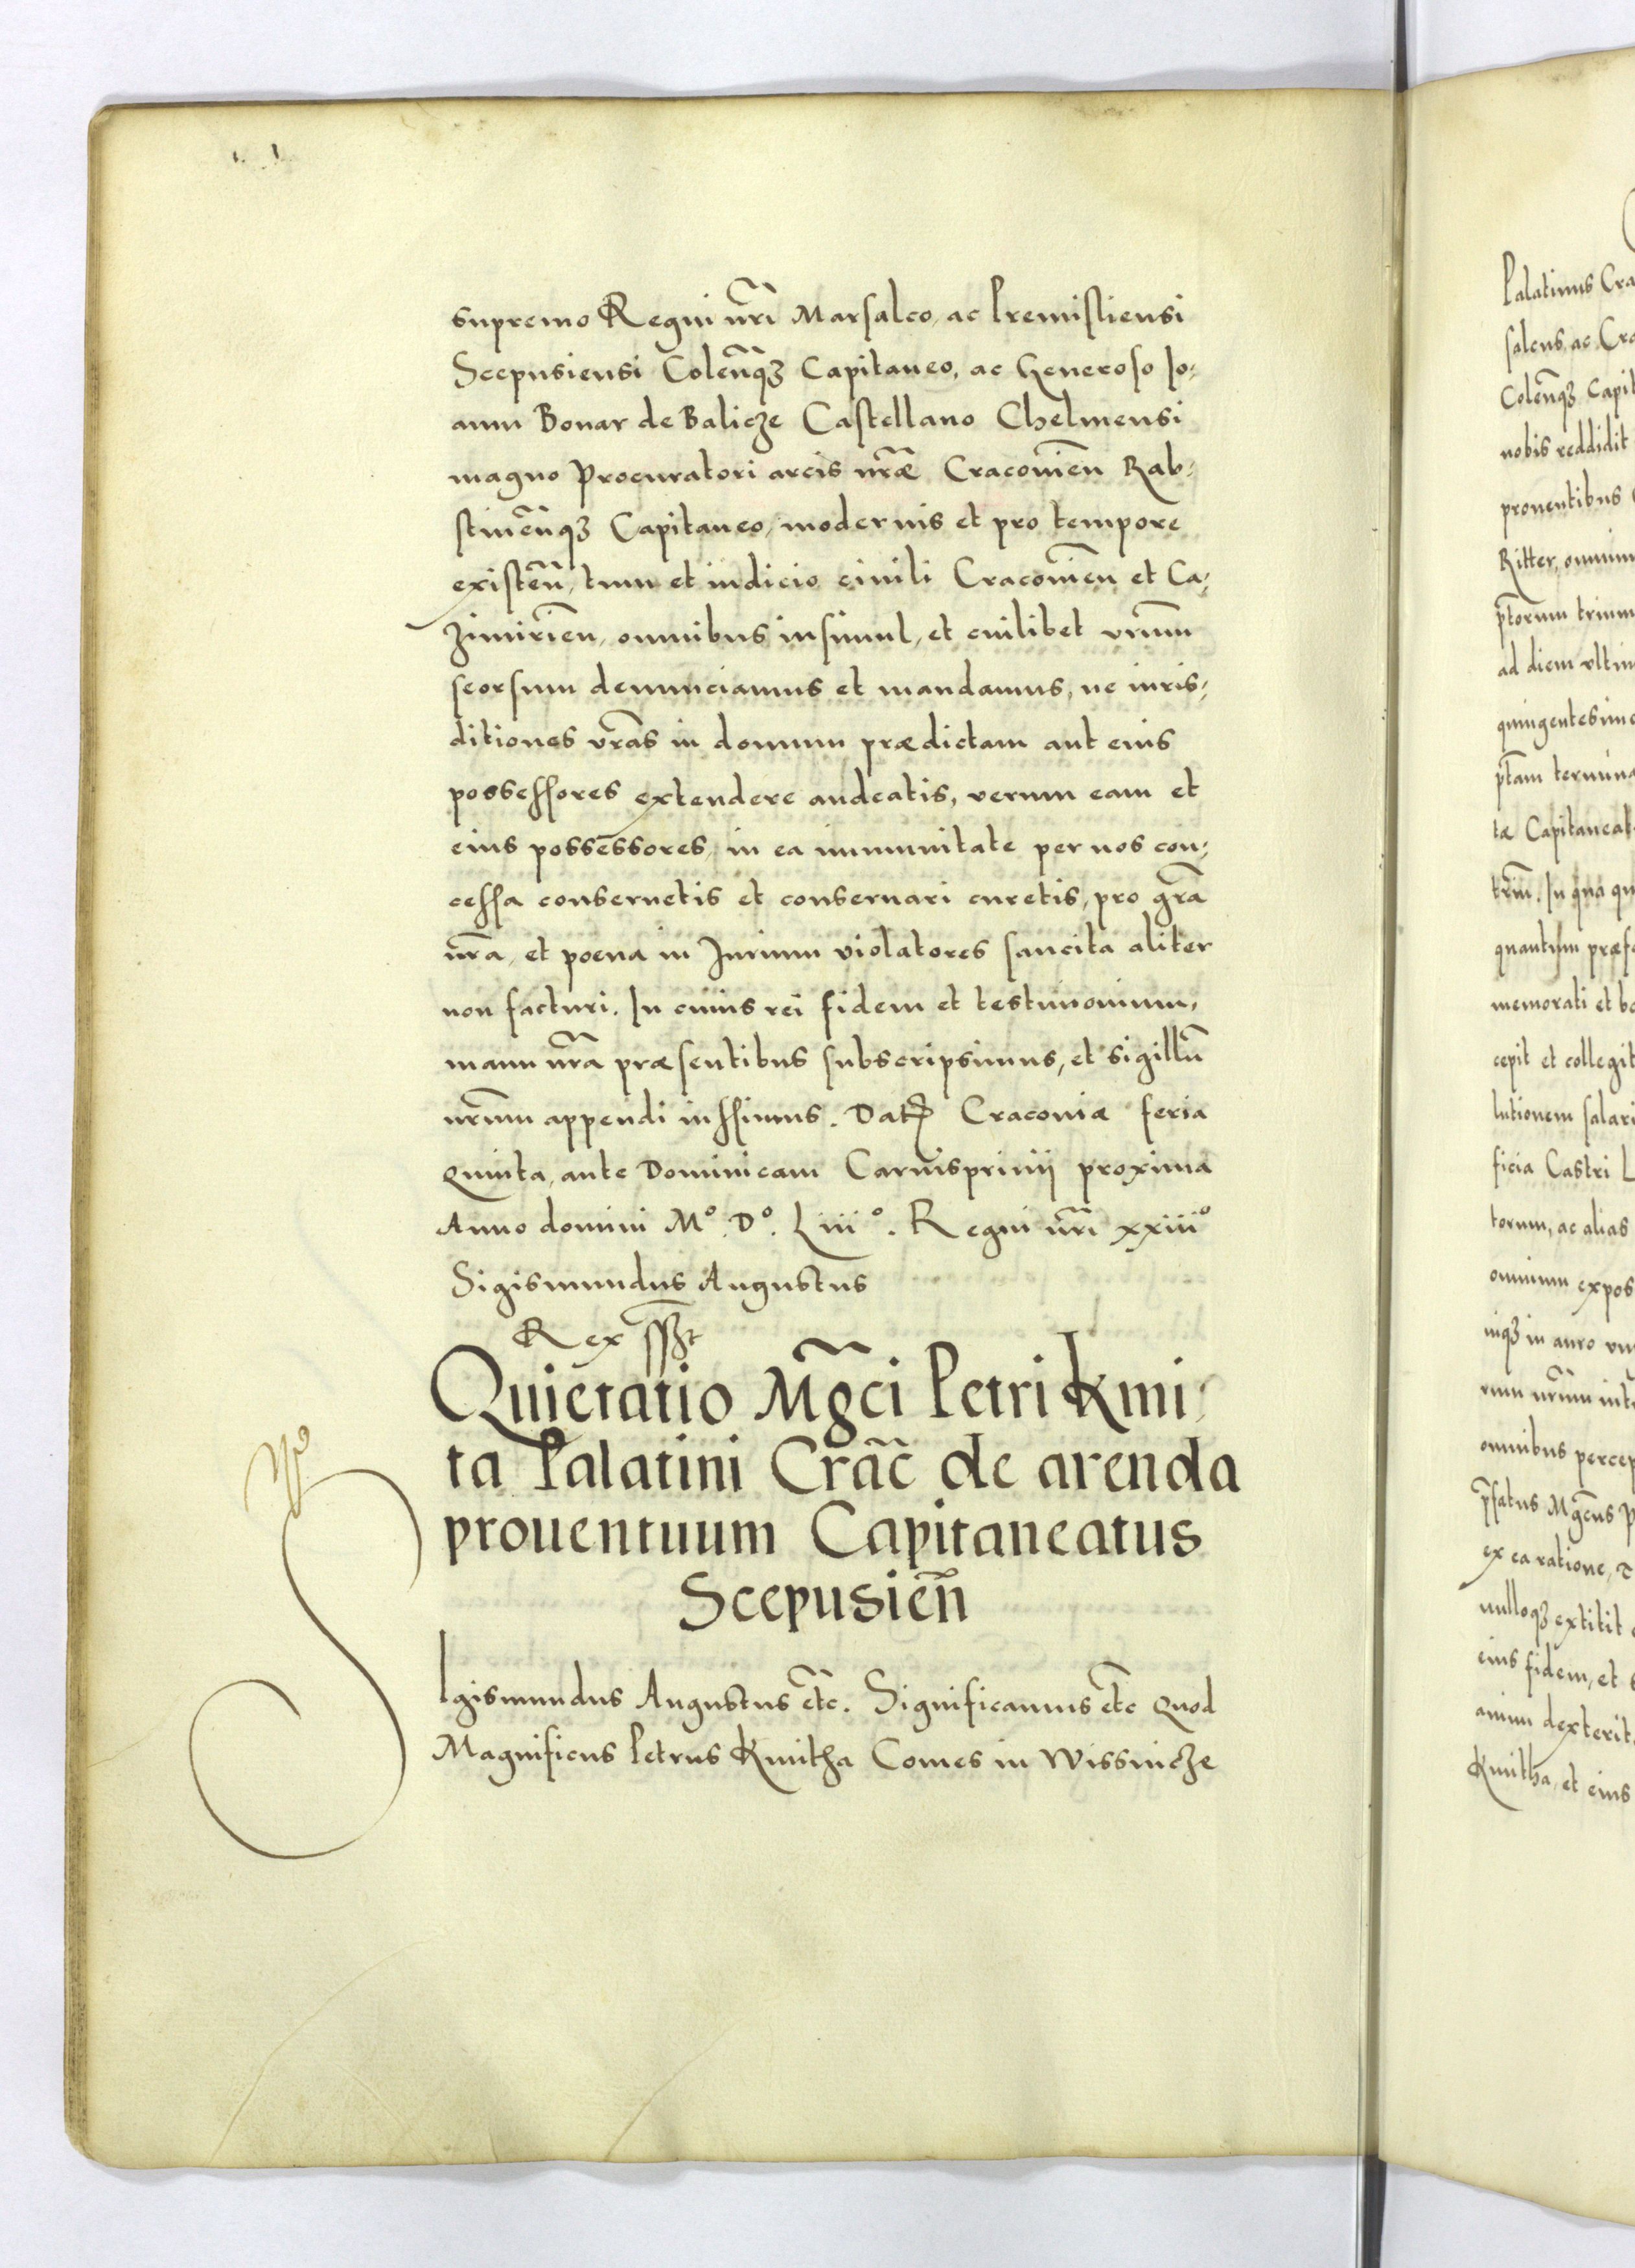 supremo Regni nr̃i Marsalco, ac Premisliensi
Scepusiensi Coleñqꝫ Capitaneo, ac Generoso Jo⸗
anni Bonar de Balicze Castellano Chelmensi
magno Procuratori arcis nr̃æ Cracouien̄ Rab⸗
stinen̄qꝫ Capitaneo, modernis et pro tempore
existen̄, tum et iudicio ciuili Cracouien̄ et Ca⸗
zimirien̄, omnibus insimul, et cuilibet vr̃um
seorsum denunciamus et mandamus, ne iuris⸗
ditiones vr̃as in domum prædictam aut eius
possessores extendere audeatis, verum eam et
eius possessores, in ea immunitate per nos con⸗
cessa conseruetis et conseruari curetis, pro gr̃a
nr̃a, et poena in Jurium violatores sancita aliter
non facturi. In cuius rei fidem et testimonium,
manu nr̃a præsentibus subscripsimus, et sigillū
nr̃um appendi iussimus. Datꝭ Cracouiæ feria
Quinta, ante Dominicam Carnispriuij proxima
Anno domini Mº. Dº. Liiiº. Regni nr̃i xxiiiiº
Sigismundus Augustus
Rex sszt
Quietatio Mg̃ci Petri Kmi⸗
ta Palatini Crac̃ de arenda
prouentuum Capitaneatus
Scepusien̄
S
Igismundus Augustus etc̃. Significamus etc̃ Quod
Magnificus Petrus Kmitha Comes in Wissnicze
Palatinus Cra
salcus, ac Cra
Colen̄qꝫ Capit
nobis reddidit
prouentibus
Ritter, omnium
p̃torum trium
ad diem vltim
quingentesimo
p̃tam termina
tæ Capitaneat
trm̃. In qua qu
quantum præf
memorati et bo
cepit et collegit
lutionem salari
ficia Castri L
torum, ac alias
omnium expos
niqꝫ in auro vn
rum nr̃um int
omnibus percep
p̃fatus Mg̃cus P
ex ea ratione,
nulloqꝫ extitit
eius fidem, et
animi dexterit
Kmitha, et eius